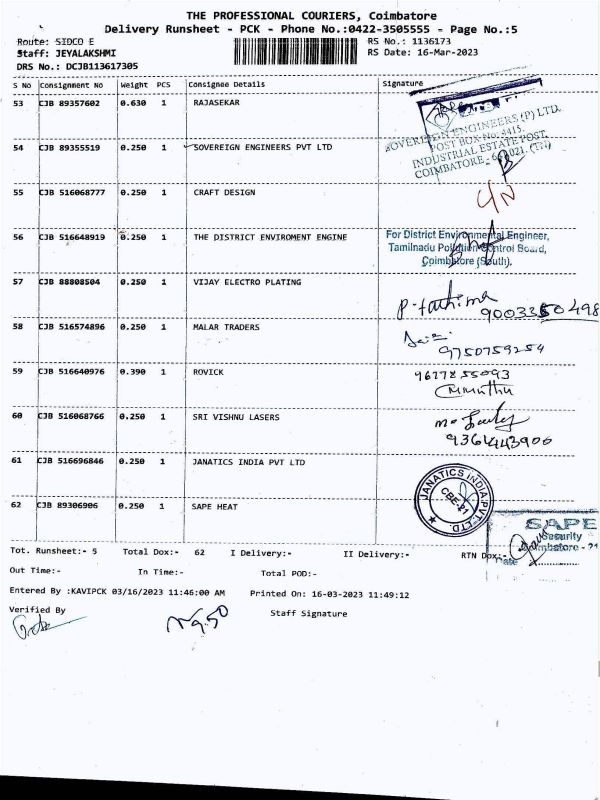 THE PROFESSIONAL COURIERS, Coimbatore
Delivery Runsheet - PCK - Phone No.:0422-3505555 - Page No.:5
Route: SIDCO E
RS No.: 1136173
Staff: JEYALAKSHMI
RS Date: 16-Mar-2023
DRS No.: DCJB113617305
S No Consignment No Weight PCS Consignee Details Signature
53 CJB 89357602 0.630 1 RAJASEKAR
54 CJB 89355519 0.250 1 SOVEREIGN ENGINEERS PVT LTD
SOVEREIGN ENGINEERS (P) LTD.
POST BOX No. 4415,
INDUSTRIAL ESTATE POST,
COIMBATORE - 641 021. (TN)
55 CJB 516068777 0.250 1 CRAFT DESIGN
56 CJB 516648919 0.250 1 THE DISTRICT ENVIROMENT ENGINE
For District Environmental Engineer,
Tamilnadu Pollution Control Board,
Coimbatore (South).
57 CJB 88808504 0.250 1 VIJAY ELECTRO PLATING
P. fathima
58 CJB 516574896 0.250 1 MALAR TRADERS
9750759254
59 CJB 516640976 0.390 1 ROVICK
9677855093
60 CJB 516068766 0.250 1 SRI VISHNU LASERS
9361443906
61 CJB 516696846 0.250 1 JANATICS INDIA PVT LTD
JANATICS INDIA PVT. LTD.
CBE-21
62 CJB 89306906 0.250 1 SAPE HEAT
SAPE
Security
Coimbatore - 21
Date
Tot. Runsheet:- 5 Total Dox:- 62 I Delivery:- II Delivery:- RTN Dox:-
Out Time:- In Time:- Total POD:-
Entered By :KAVIPCK 03/16/2023 11:46:00 AM Printed On: 16-03-2023 11:49:12
Verified By
Staff Signature